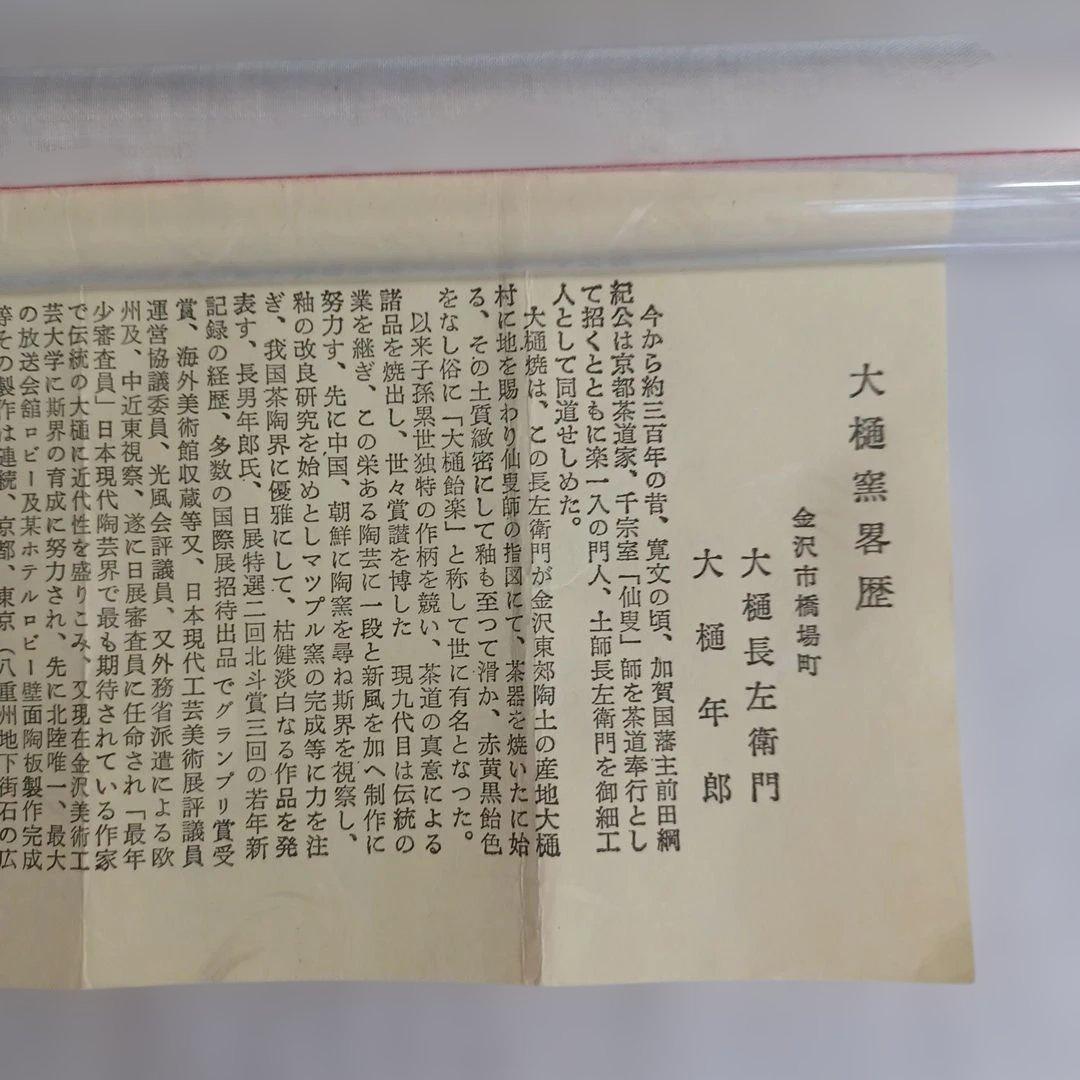 大樋窯畧歴
金沢市橋場町
大樋長左衛門
大樋年郎
今から約三百年の昔、寛文の頃、加賀国藩主前田綱
紀公は京都茶道家、千宗室「仙叟」師を茶道奉行とし
て招くとともに楽一入の門人、土師長左衛門を御細工
人として同道せしめた。
大樋焼は、この長左衛門が金沢東郊陶土の産地大樋
村に地を賜わり仙叟師の指図にて、茶器を焼いたに始
る、その土質緻密にして釉も至つて滑か、赤黄黒飴色
をなし俗に「大樋飴楽」と称して世に有名となつた。
以来子孫累世独特の作柄を競い、茶道の真意による
諸品を焼出し、世々賞讃を博した 現九代目は伝統の
業を継ぎ、この栄ある陶芸に一段と新風を加へ制作に
努力す、先に中国、朝鮮に陶窯を尋ね斯界を視察し、
釉の改良研究を始めとしマツプル窯の完成等に力を注
ぎ、我国茶陶界に優雅にして、枯健淡白なる作品を発
表す、長男年郎氏、日展特選二回北斗賞三回の若年新
記録の経歴、多数の国際展招待出品でグランプリ賞受
賞、海外美術館収蔵等又、日本現代工芸美術展評議員
運営協議委員、光風会評議員、又外務省派遣による欧
州及、中近東視察、遂に日展審査員に任命され「最年
少審査員」日本現代陶芸界で最も期待されている作家
で伝統の大樋に近代性を盛りこみ、又現在金沢美術工
芸大学に斯界の育成に努力され、先に北陸唯一、最大
の放送会館ロビー及某ホテルロビー壁面陶板製作完成
等その製作は連続、京都、東京（八重洲地下街石の広